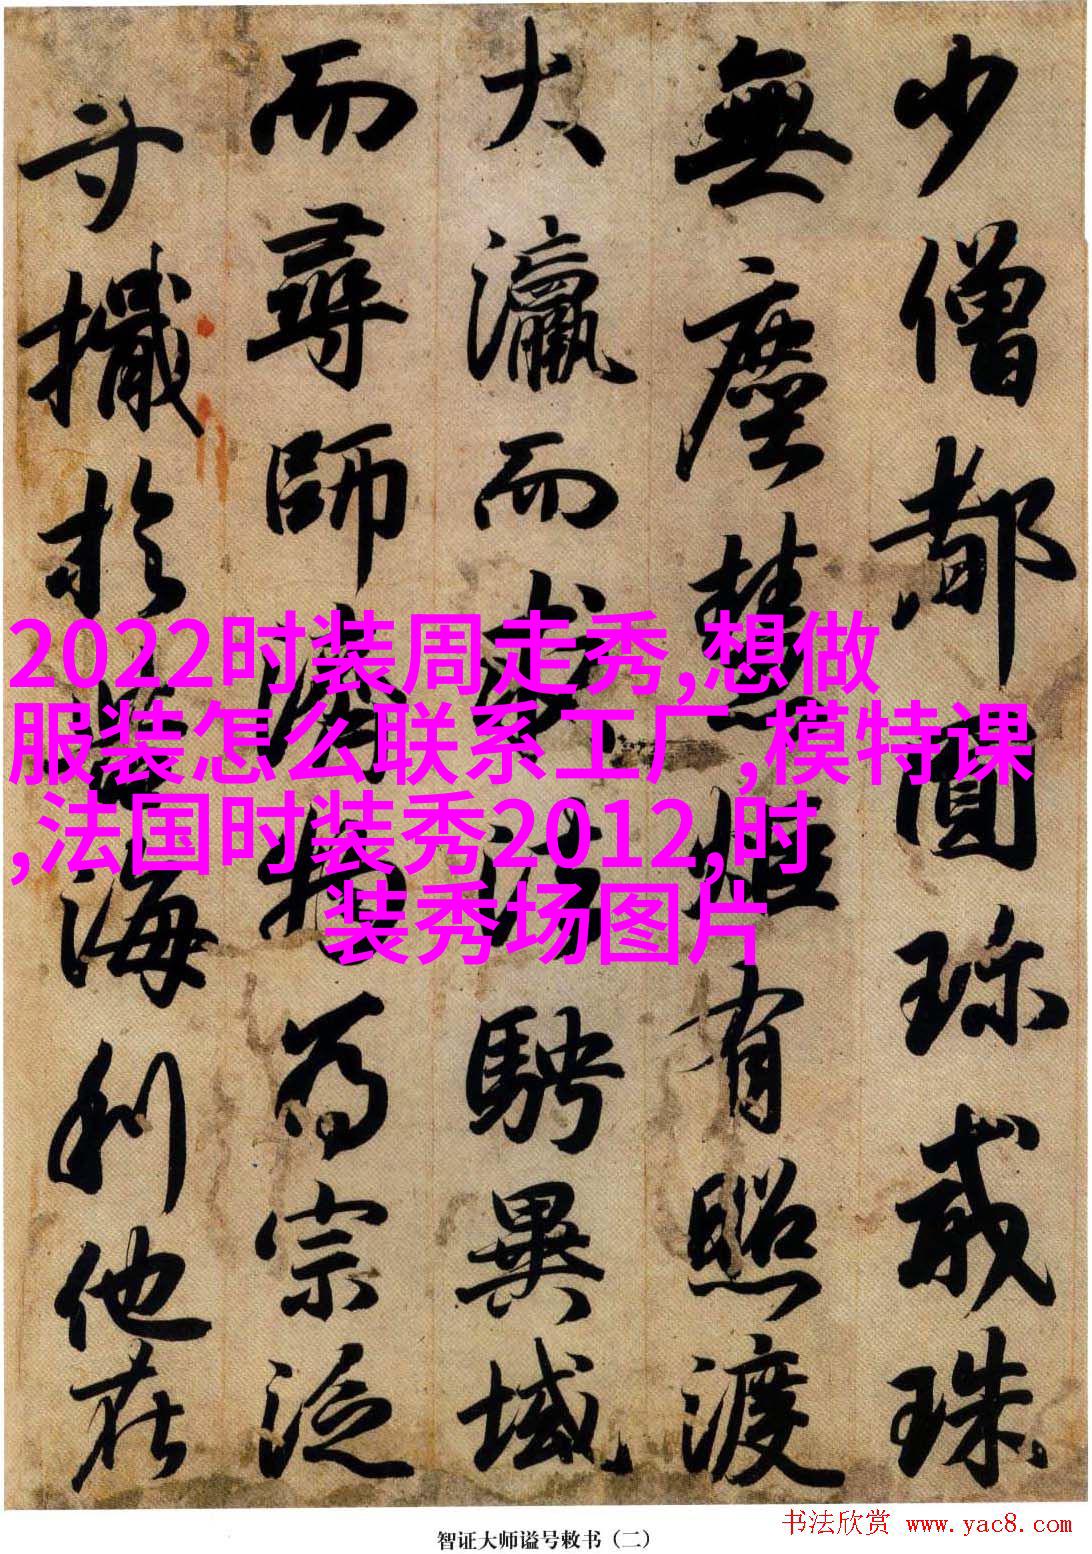 少僧都圓珎戒珠
無塵慧炬有照渡
大瀛而求法騁異域
而尋師為宗泛
寸檝於苦海利他在
2022时装周走秀,想做
服装怎么联系工厂,模特课
,法国时装秀2012,时
装秀场图片
智证大师谥号敕书（二）
书法欣赏 www.yac8.com